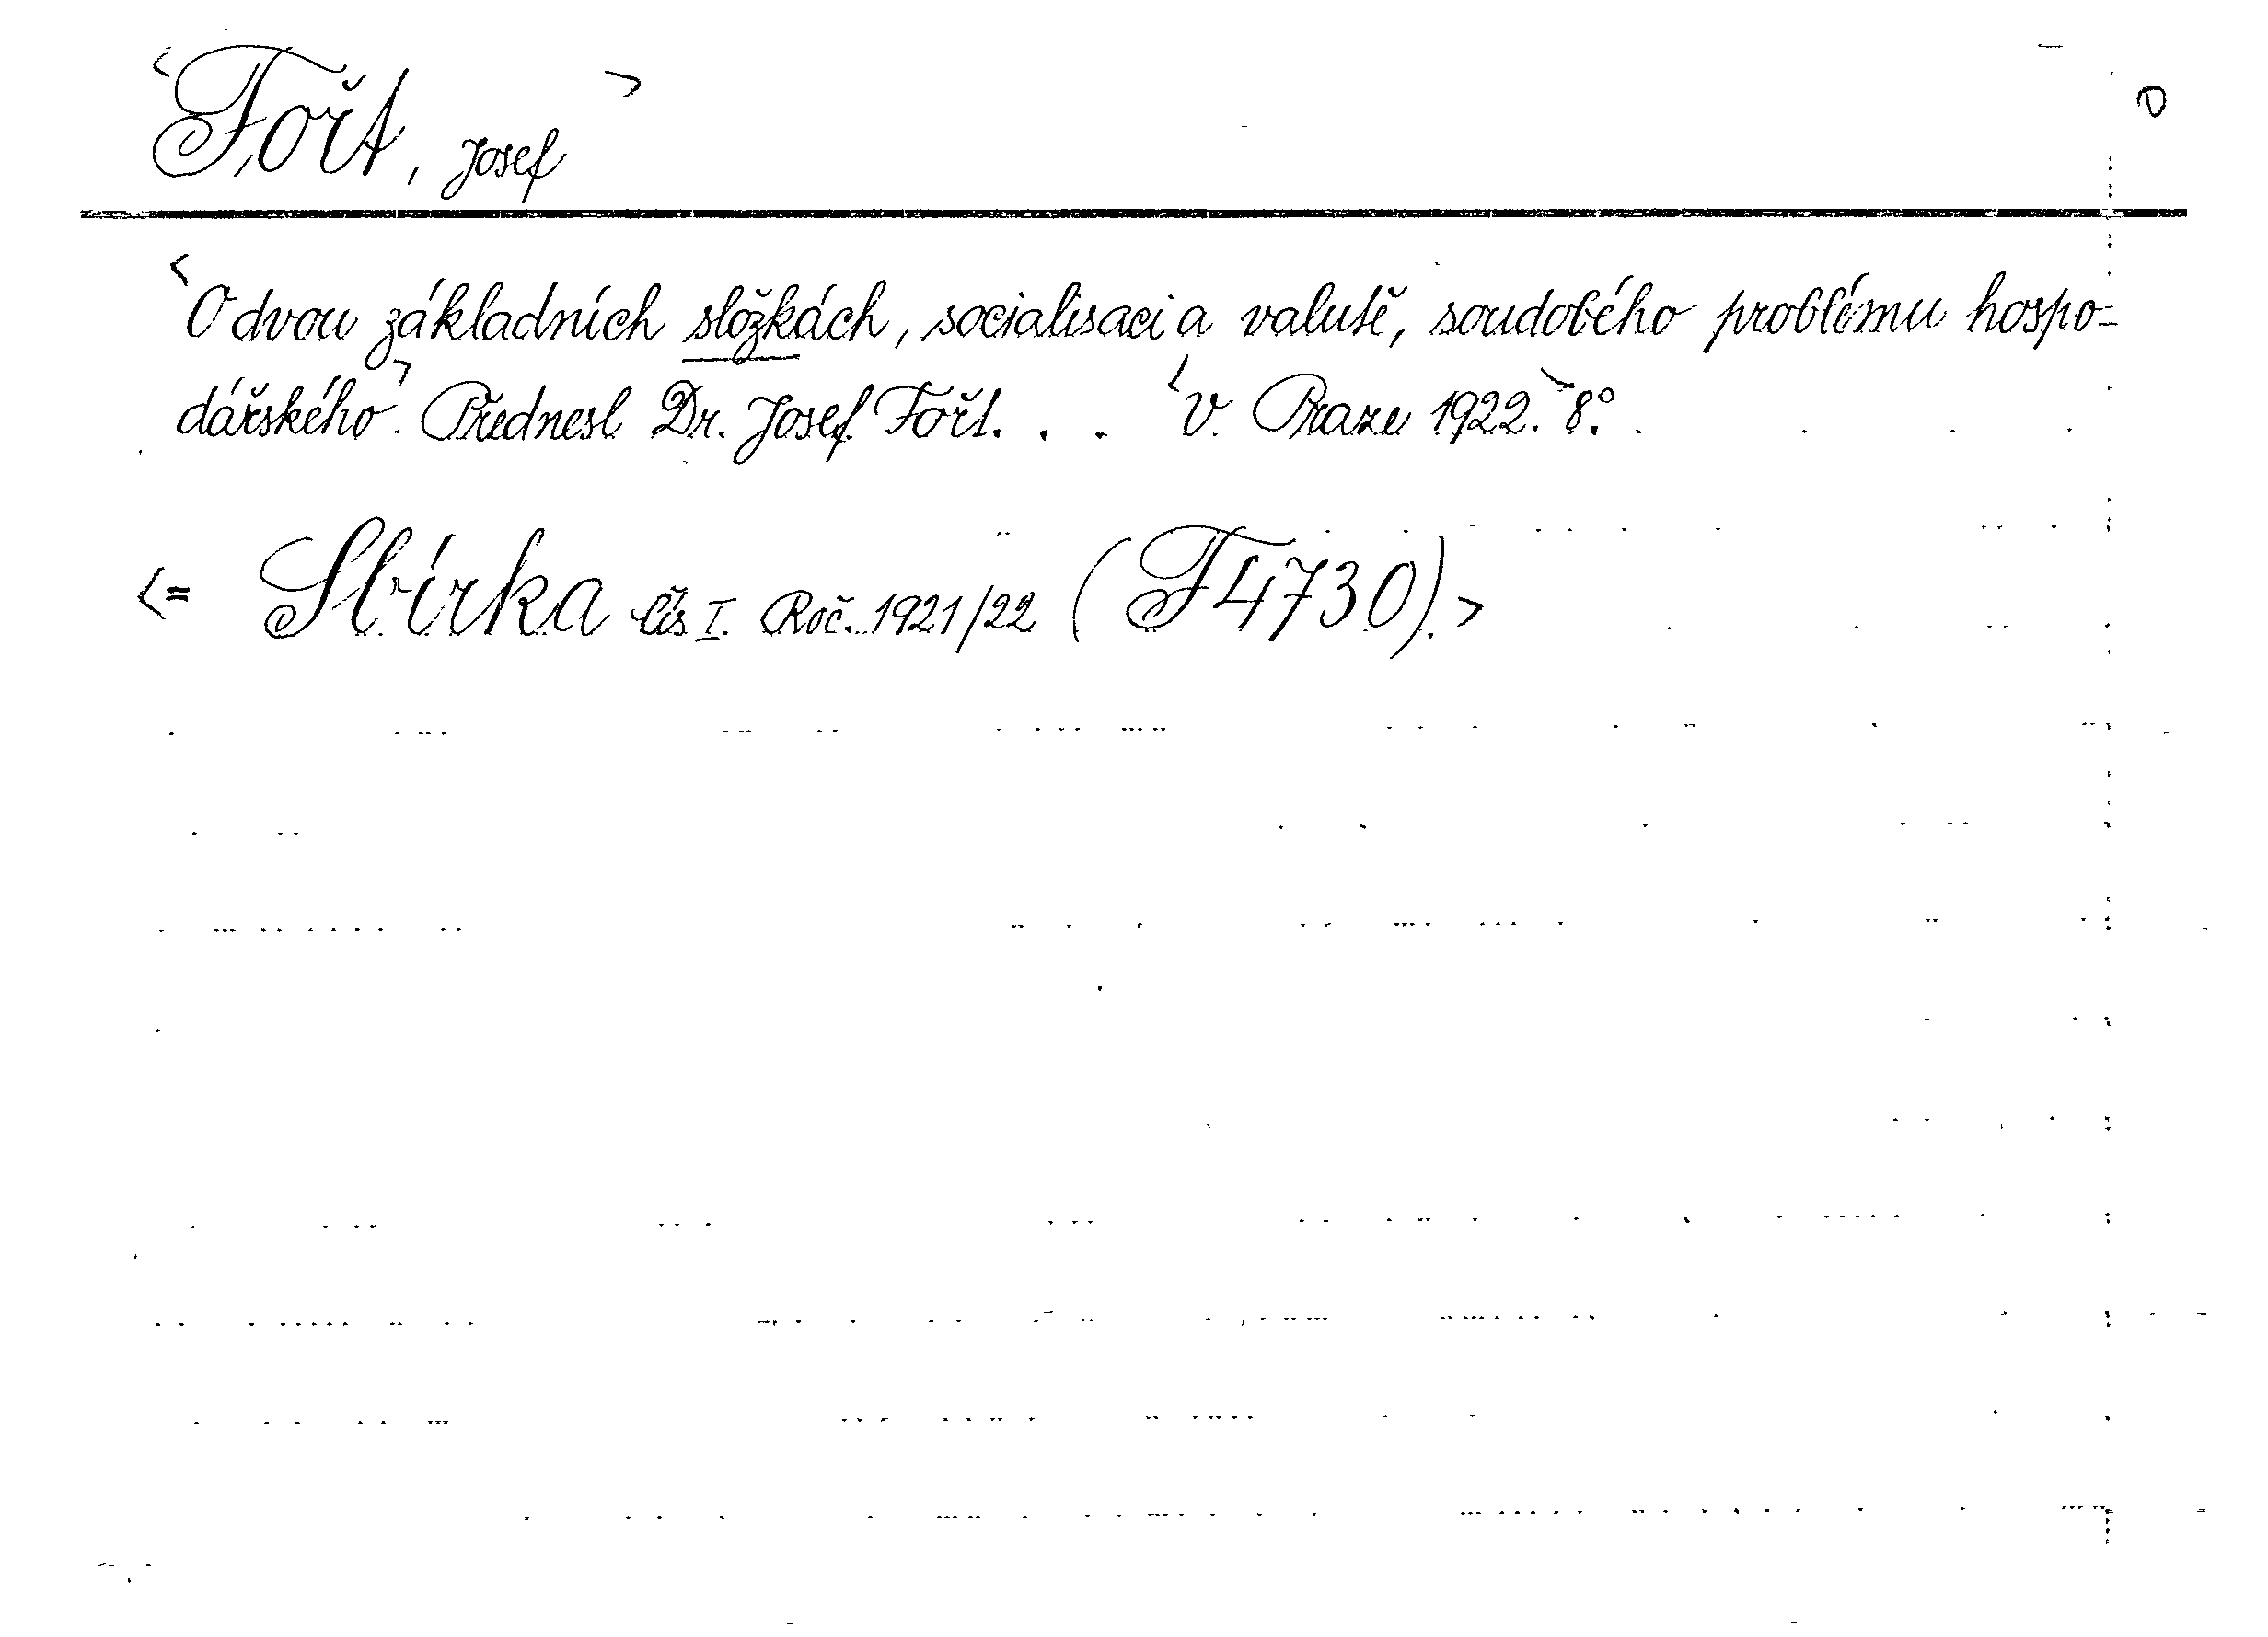 <Fořt, Josef>
O
<O dvou základních složkách, socialisaci a valutě, soudobého problému hospo=
dářského>. Přednesl Dr. Josef Fořt. . . <V Praze 1922.> 8°.
<= Sbírka čís I. Roč. 1921/22 (F4730).>